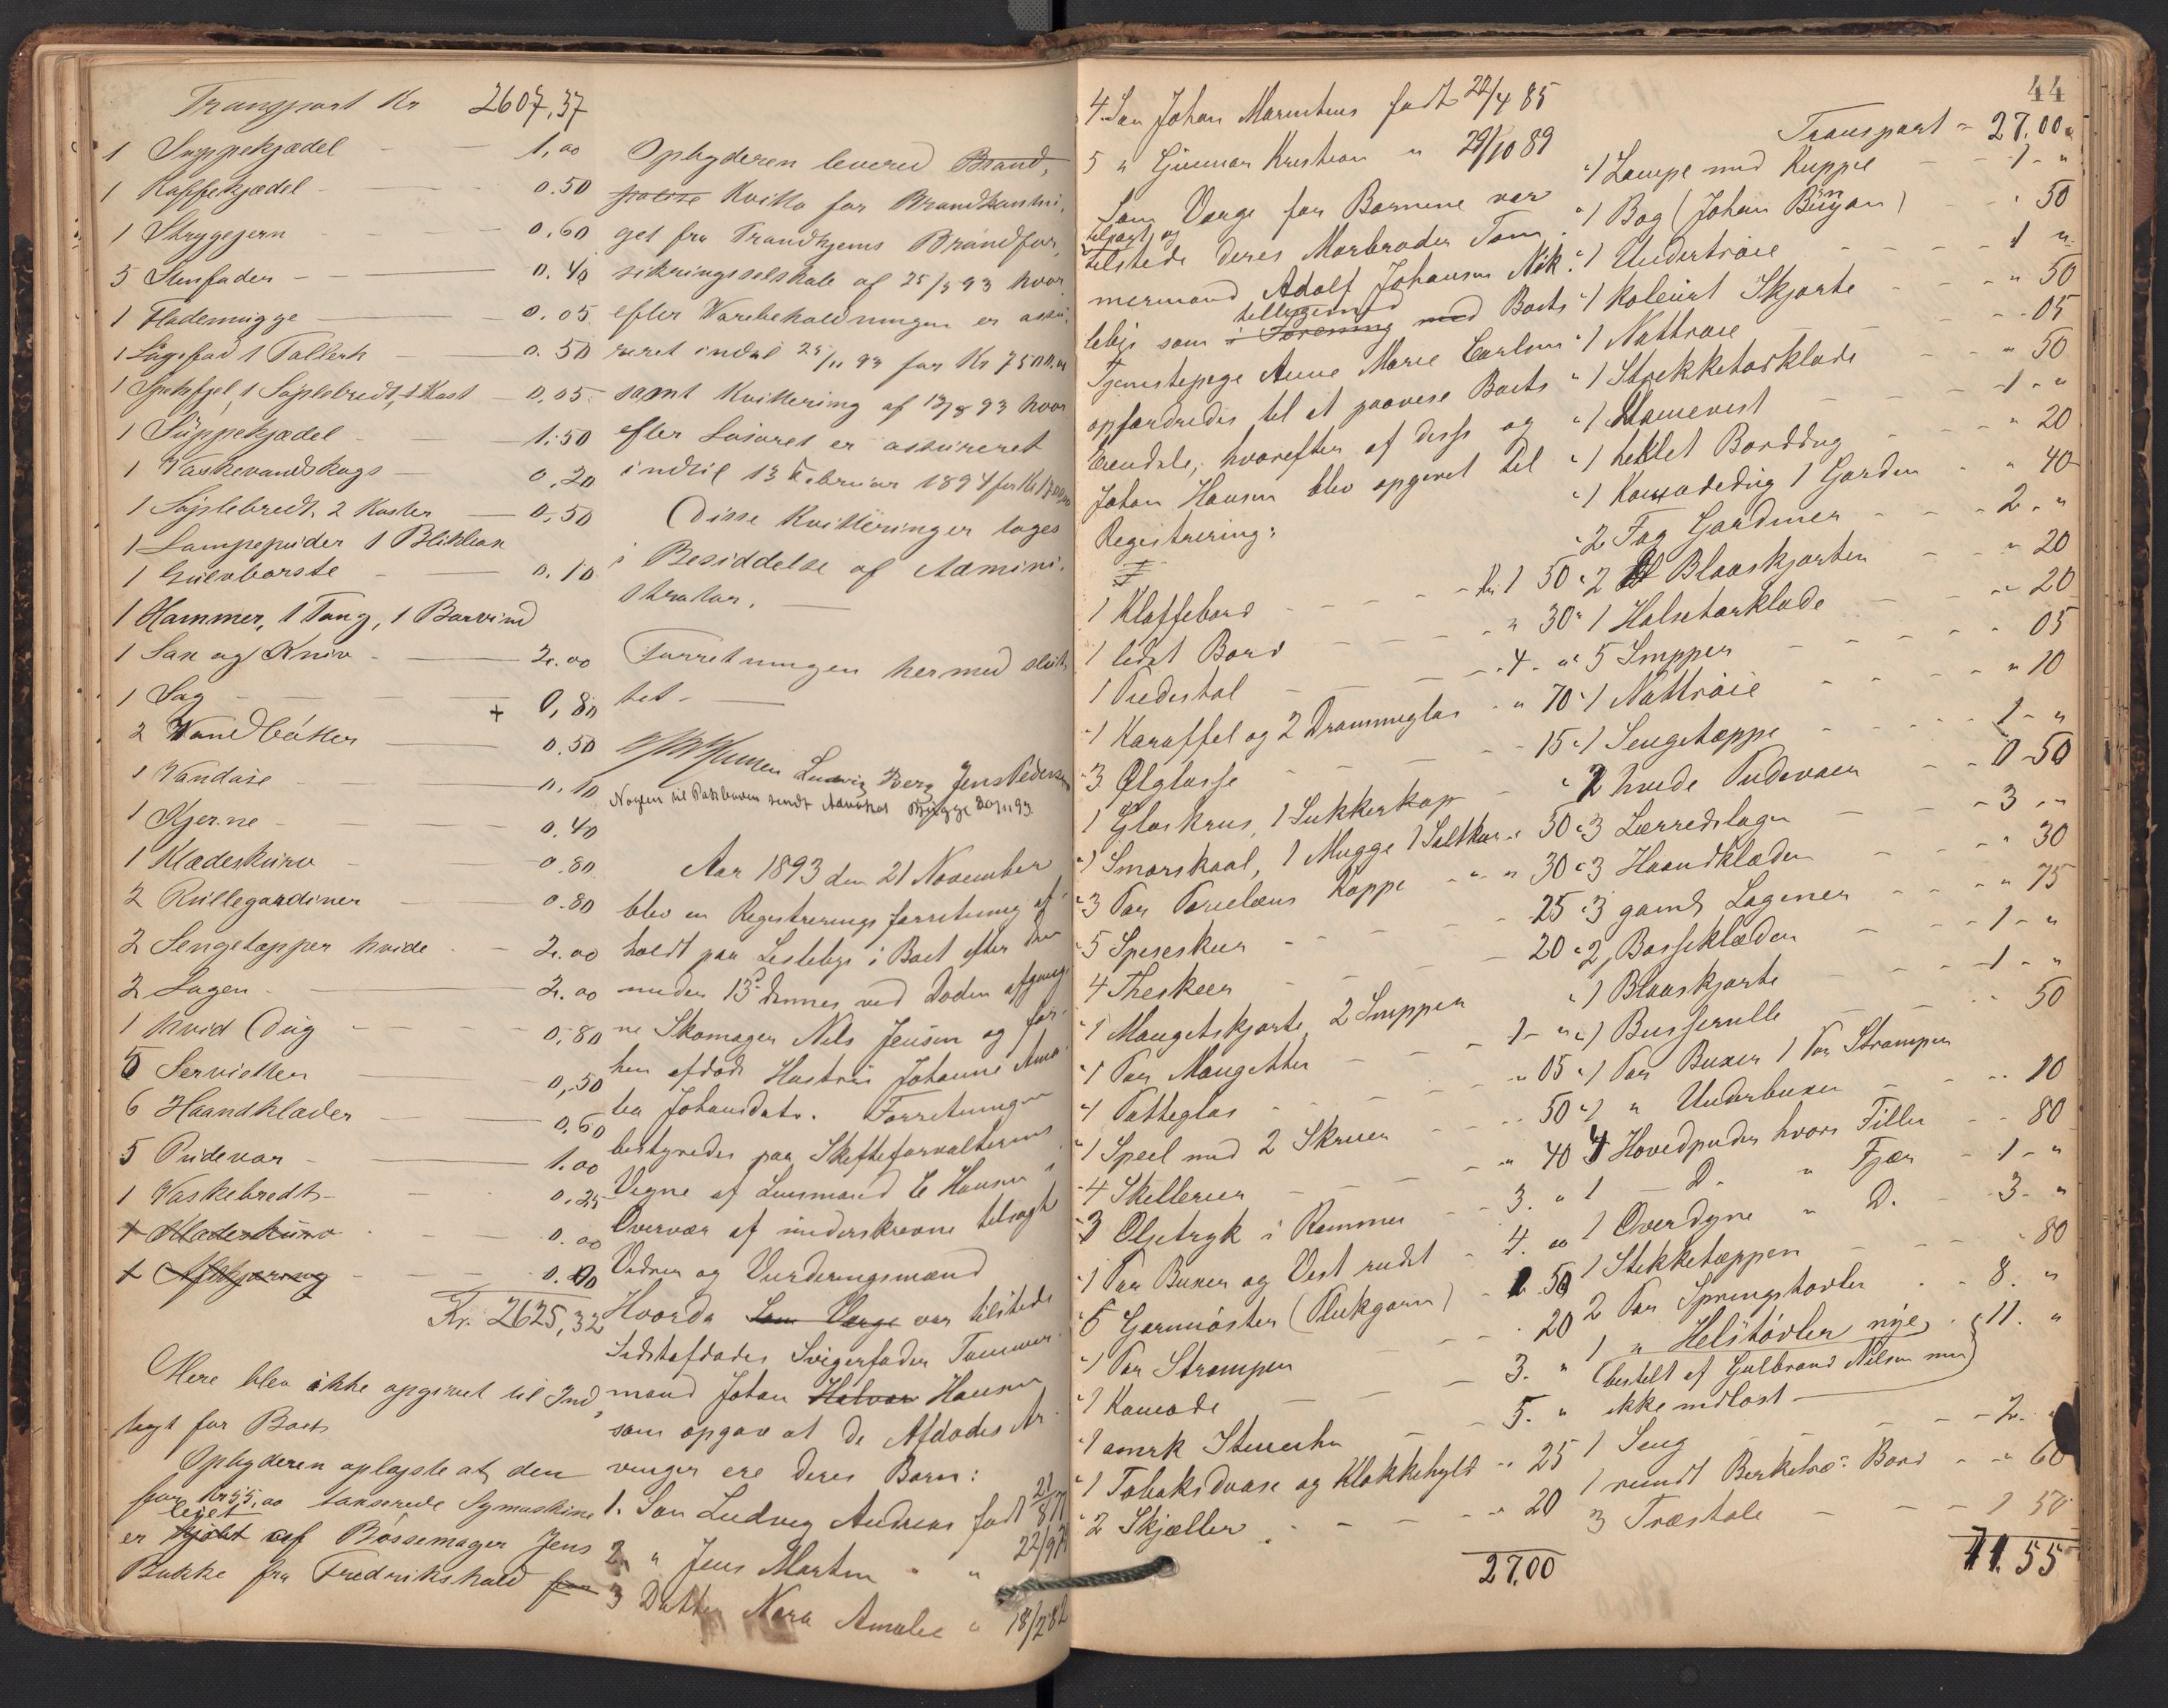 Transport Kr 2607,37
1 Suppekjædel 1,00
1 Kaffekjædel 0.50
1 Strygejern 0.60
5 Stenfader 0.40
1 Flademugge 0.05
1 Tallerk 0.50
1 Sypleбredt, 1 Kost 0,05
1 Suppekjædel 1.50
1 Vaskevandskags 0,20
1 Syplebredt. 2 Koster 0,50
1 Lampepuder 1 Blikkan
1 Gulvbørste 0.10
1 Hammer, 1 Tang, 1 Borvind
1 Sax og Kniv 2.00
1 Sag + 0,80
2 Vandbøtter 0.50
1 Vandøse 0,10
1 Kjerne 0.40
1 Klædeskurv 0.80
2 Rullegardiner 0.80
2 Sengetæpper hvide 2.00
2 Lagen 2.00
1 hvid Dug 0,80
5 Servietter 0,50
6 Haandklæder 0.60
5 Pudevar 1.00
1 Vaskebredt 0.25
1 Klædeskurv 0.00
Kr. 2625,32
Mere blev ikke opgivet til Ind
tægt for Boet.
Opbyderen oplyste at den
for Kr 55,00 taxerede Symaskine
leiet
er kjøbt af Bøssemager Jens
Bakke fra Fredrikshald for
Opbyderen levered Brand,
polise Kvitto for Brandkontin
get fra Trondhjems Brandfor,
sikringsselskab af 25/5 93 hvor
efter Varebeholdningen er assu,
reret indtil 25/11 93 for Kr 7500.00
samt Kvittering af 13/8 93 hvor
efter Løsøret er assureret
indtil 13 Februar 1894 for Kr
Disse Kvitteringer toges
i Besiddelse af Admini,
strator.
Forretningen hermed slut,
tet -
Ludvig Berg Jens Pedersen
Nøglen til Pakboden sendt Advokat Bugge 20/11 93
Aar 1893 den 21 November
blev en Registreringsforretning af,
holdt paa Leslebye i Boet efter den
under 13de dennes ved Døden afgang,
ne Skomager Nils Jensen og før,
hen afdøde Hustru Johanne Ama,
lia Johansdatr. Forretningen
bestyredes paa Skifteforvalterens
Vegne af Lensmand E Hansen i
Overvær af underskrevne tilsagte
Vidner og Vurderingsmænd
Hvorda Som Værge var tilstede
Sidstafdødes Svigerfader Tømmer,
mand Johan Halvor Hansen
som opgav at de Afdødes Ar,
vinger ere deres Børn:
1. Søn Ludvig Andreas født 21/8
2. " Jens Martin " 22/9
3 Datter Nora Amalie " 18/2 82
44
4. Søn Johan Marentius født 22/4 85
5 " Gunnar Kristian " 29/10 89
Som Værge for Børnene var
tilsagt og
tilstede deres Morbroder Tøm,
mermand Adolf Johansen Nök,
tilligemed
lebye som i Forening med Boets
Tjenestepige Anne Marie Carlsen
opfordredes til at paavise Boets
Eiendele, hvorefter af disse og
Johan Hansen blev opgivet til
Registrering:
1 Klaffebord Kr. 1 50
1 lidet Bord " 30
1 Piedestal 4. "
1 Karaffel og 2 Dramneglas " 70
3 Ølglasse 15
1 Glaskrus, 1 Sukkerkop
1 Smørskaal, 1 Mugge 1 Saltkar " 50
3 Par Porcelæns Koppe " 30
5 Speseskeer 25
4 Theskeer 20
1 Mangetskjorte, 2 Snipper
1 Par Mangetter 1 - "
1 Patteglas " 05
1 Speil med 2 Skruer 50
4 Skillerier " 40
3 Oljetryk i Rammer 3. "
1 Par Buxer og Vest rudet 4. 00
5 Garnnøster (Blekgarn) 1 50
1 Par Strømper 20
1 Komode 3. "
1 amrk Stueuhr 5. "
1 Tobaksdaase og Klokkehylde " 25
2 Skjæller " 20
27.00
Transport = 27.00
1 Lampe med Kuppel 1 - "
1 Bog (Johan Bunyan) " 50
1 Undertrøie 1 "
1 kolørt Skjorte " 50
1 Nattrøie 05
1 Strikketørklæde " 50
1 Damevest 1 - "
1 heklet Borddug " 20
1 Komodedug 1 Gardin " 40
2 Fag Gardiner 2. "
2 Blaaskjorter " 20
1 Halstørklæde " 20
5 Snipper 05
1 Nattrøie " 10
1 Sengetæppe 1 - "
2 hvide Pudevaer 0-50
3 Lærredslagn 3 - "
3 Haandklæder " 30
3 gamle Lagener " 75
2, Bosseklæder 1 - "
1 Blaaskjorte 1 - "
1 Busserulle 50
1 Par Buxer 1 Par Strømper
1 " Underbuxer 10
4 Hovedpuder hvori Filler 80
1 D. " Fjær 1 - "
1 Overdyne " D. 3 - "
1 Stikketæppen 80
2 Par Springstøvler 8. "
1 " Helstøvler nye 11. "
(bestilt af Gulbrand Nilsen men
ikke indløst
1 Seng 2. "
1 rundt Birketræs Bord " 60
3 Træstole 1 50
71.55